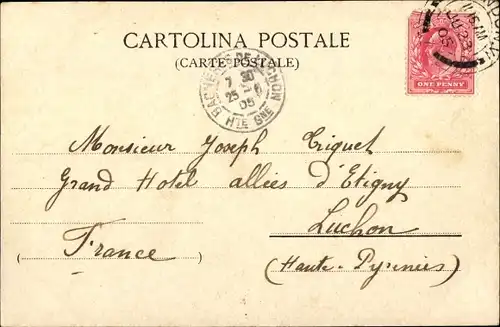 CARTOLINA POSTALE
(CARTE POSTALE)
BAGNERES DE LUCHON
7 30
25 6
05
HTE GNE
JU 23
05
ONE PENNY
Monsieur Joseph Triquet
Grand Hotel allées d'Etigny
Luchon
France
(Haute-Pyrénées)